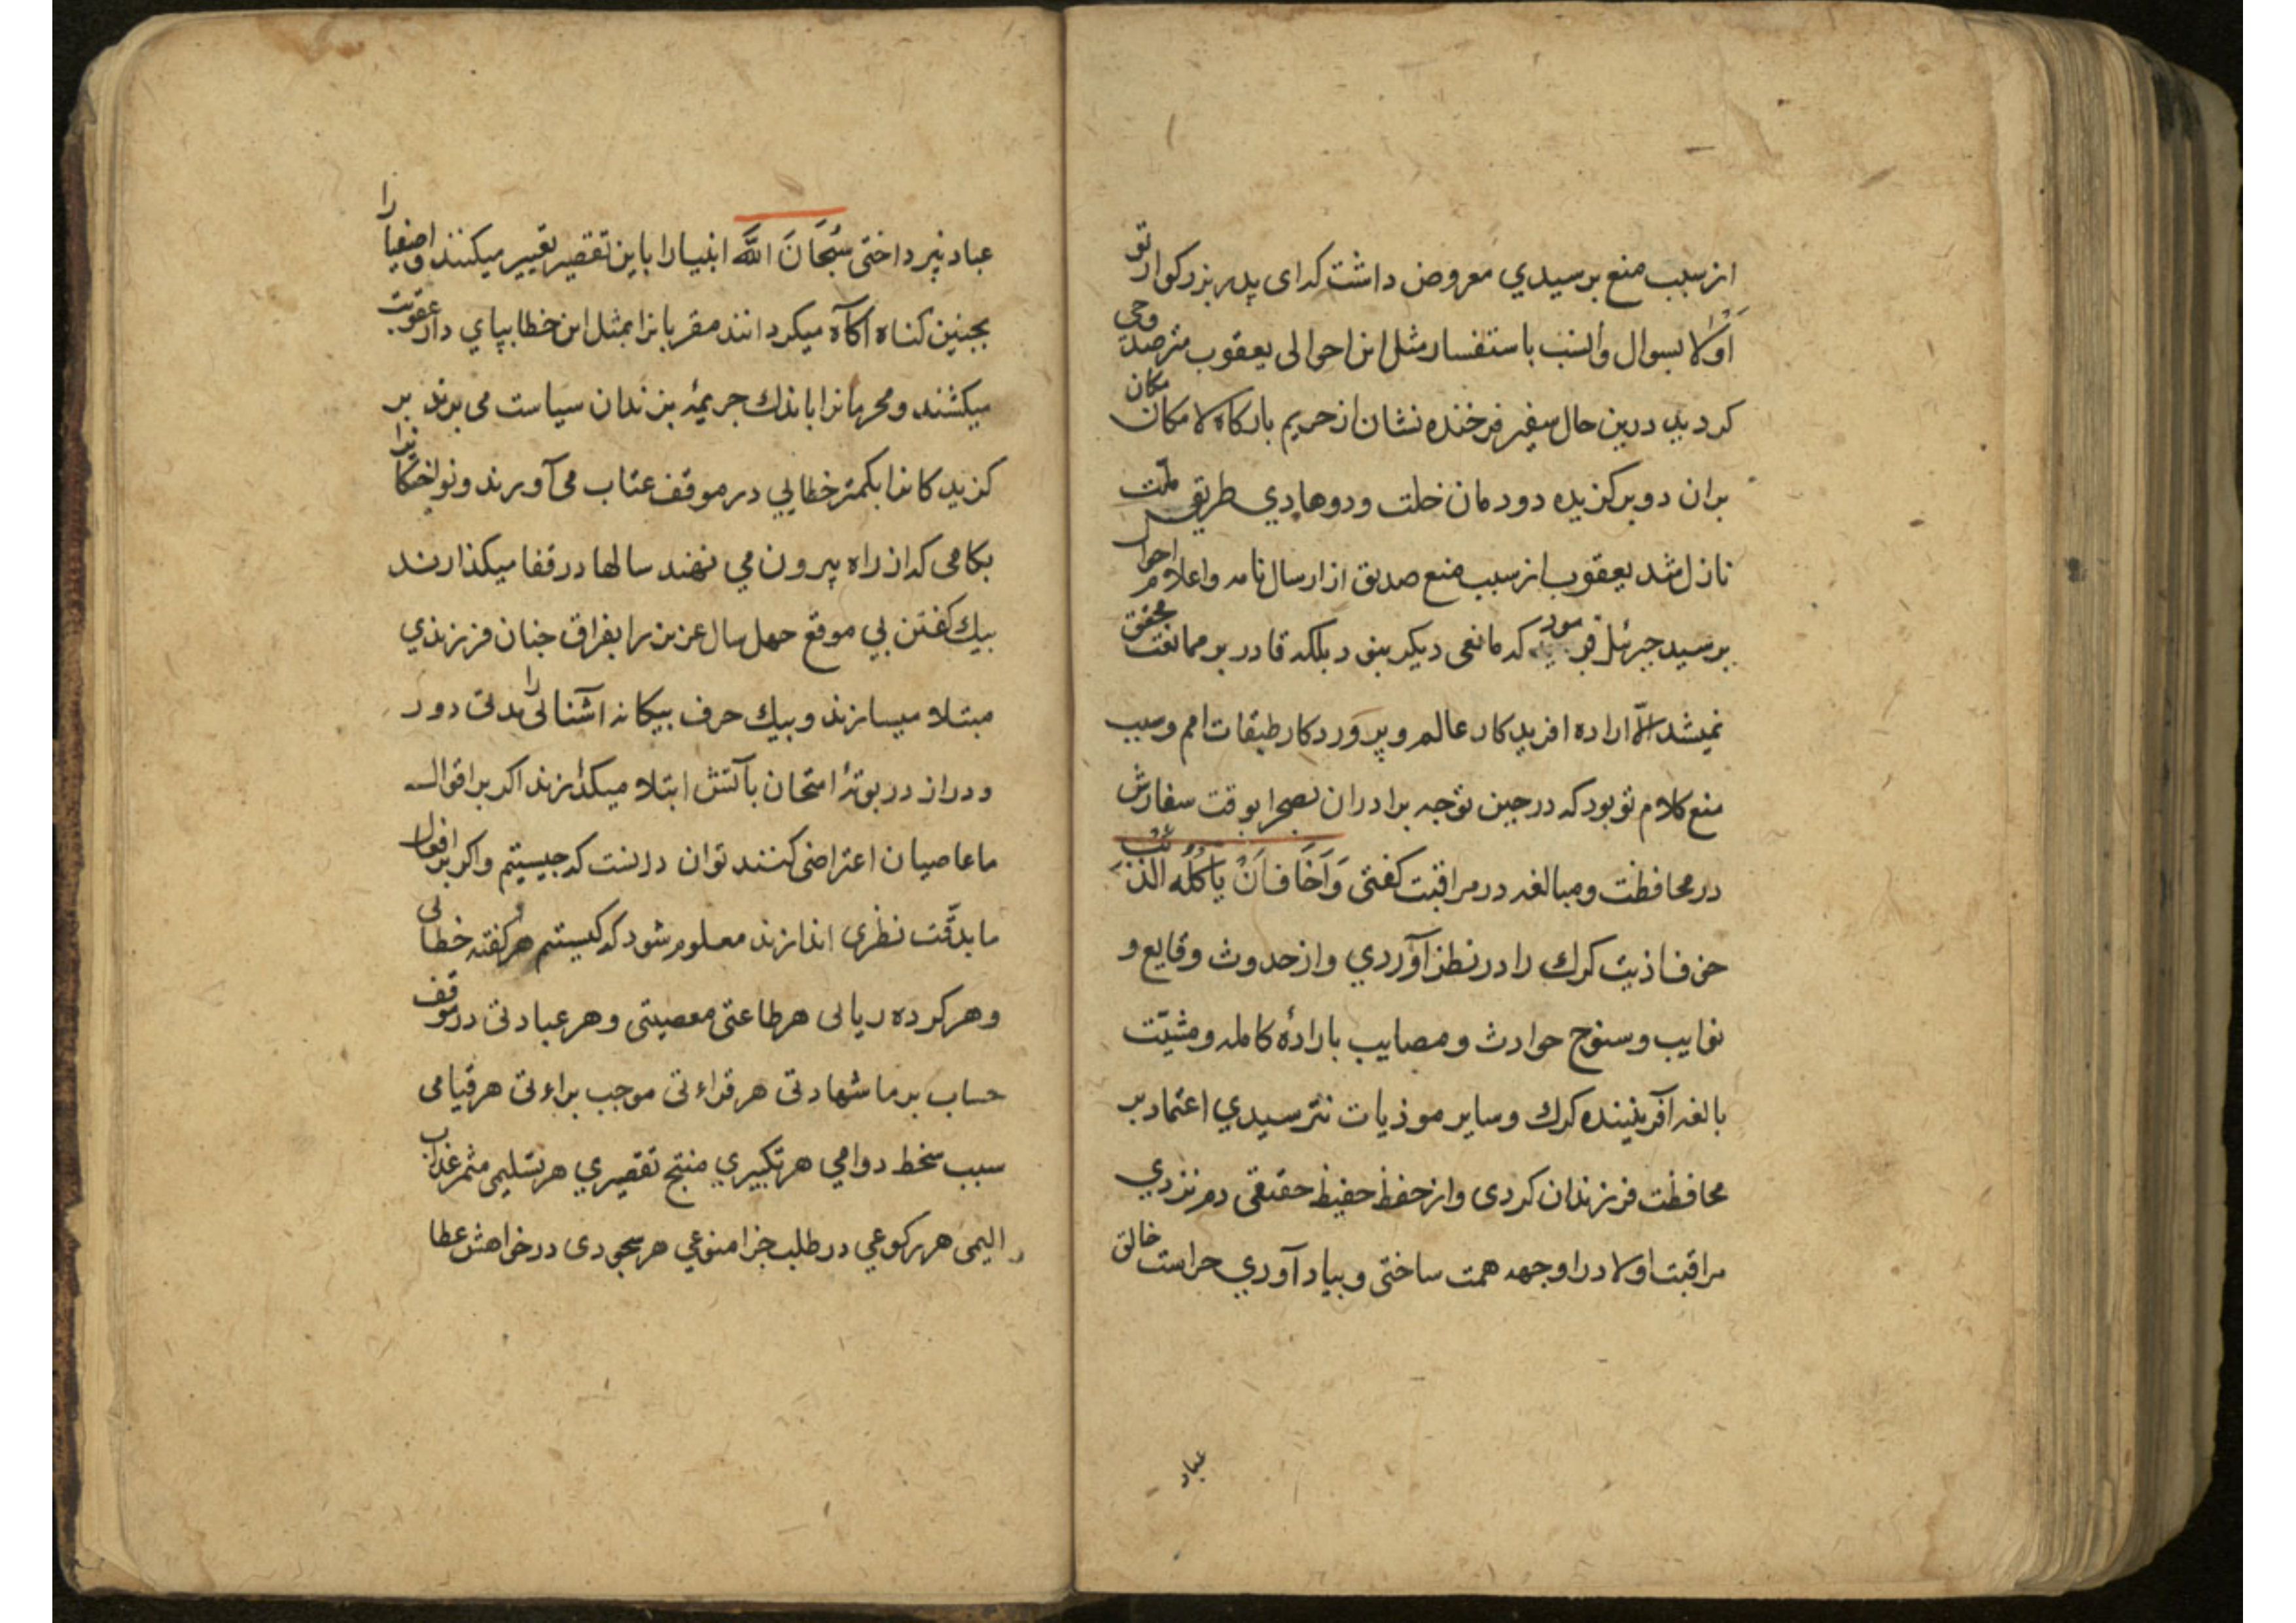 از سبب منع برسیدي معروض داشت که ای پدر بزرکوار تو
اولا بسوال وانسب باستفسار مثل این احوالی یعقوب مترصد وحی
کردید درین حال سفیر فرخنده نشان از حریم بارکاه لا مکان مکان
بران دو برکزیده دودمان خلت ودوهادي طریق ملت
نازل شد یعقوب از سبب منع صدیق از ارسال نامه واعلام احوال
برسید جبرئل فرمود که مانعی دیکر بنود بلکه قادر بر ممانعت محقق
نمیشد الا اراده افریدکار عالم و پروردکار طبقات امم وسبب
منع کلام تو بود که در حین توجه برادران بصحرا بوقت سفارش
در محافظت ومبالغه در مراقبت کفتی وَاَخَافُ اَنْ یَاْکُلَه الذِّئْبُ
اذیت کرك را در نظر آوردي واز حدوث وقایع و
نوایب وسنوح حوادث ومصایب بارادۀ کامله ومشیّت
بالغه آفریننده کرك وسایر موذیات نترسیدي اعتماد بر
محافظت فرزندان کردی واز حفظ حفیظ حقیقی دم نزدي
مراقبت اولاد را وجهه همت ساختی وبیاد آوري حراست خالق
عباد
عباد نپرداختی سُبْحَانَ اللّٰه انبیا را باین تقصیر تغییر میکنند واصفیا را
بجنین کناه آکاه میکردانند مقربانرا بمثل این خطا بپاي دار عقوبت
میکشند ومحرمانرا باندك جریمۀ بزندان سیاست می برند بر
کزیدکانرا بکمتر خطایی در موقف عتاب می آورند ونواختکانرا
بکامی که از راه بیرون می نهند سالها در قفا میکذارند
بیك کفتن بی موقع جهل سال عزیز را بفراق جنان فرزندي
مبتلا میسازند وبیك حرف بیکانه آشنائی را مدتی دور
ودراز در بوتۀ امتحان بآتش ابتلا میکدازند اکر بر اقوال
ما عاصیان اعتراضی کنند توان دانست که جیستیم واکر بر افعال
ما بدقّت نظری اندازند معلوم شود که کیستیم هر کفتۀ خطائی
وهر کرده ریائی هر طاعتی معصیتی وهر عبادتی در موقف
حساب بر ما شهادتی هر قراءتی موجب براءتی هر قیامی
سبب سخط دوامی هر تکبیري منتج تقصیري هر تسلیمی مثمر عذاب
الیمی هر رکوعي در طلب جزا منوعي هر سجودی در خواهش عطا